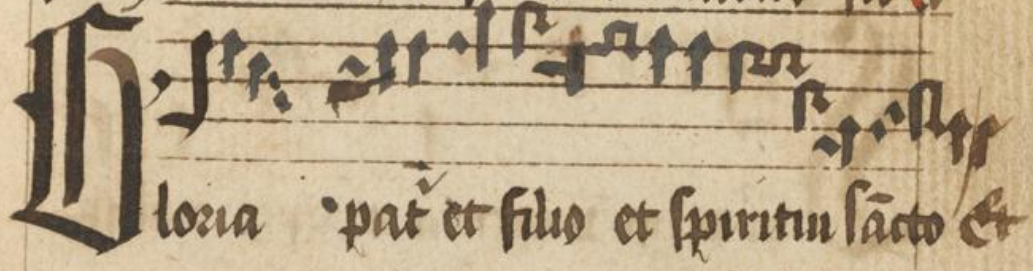 Gloria pat̃ et filio et spiritui sc̄to Et